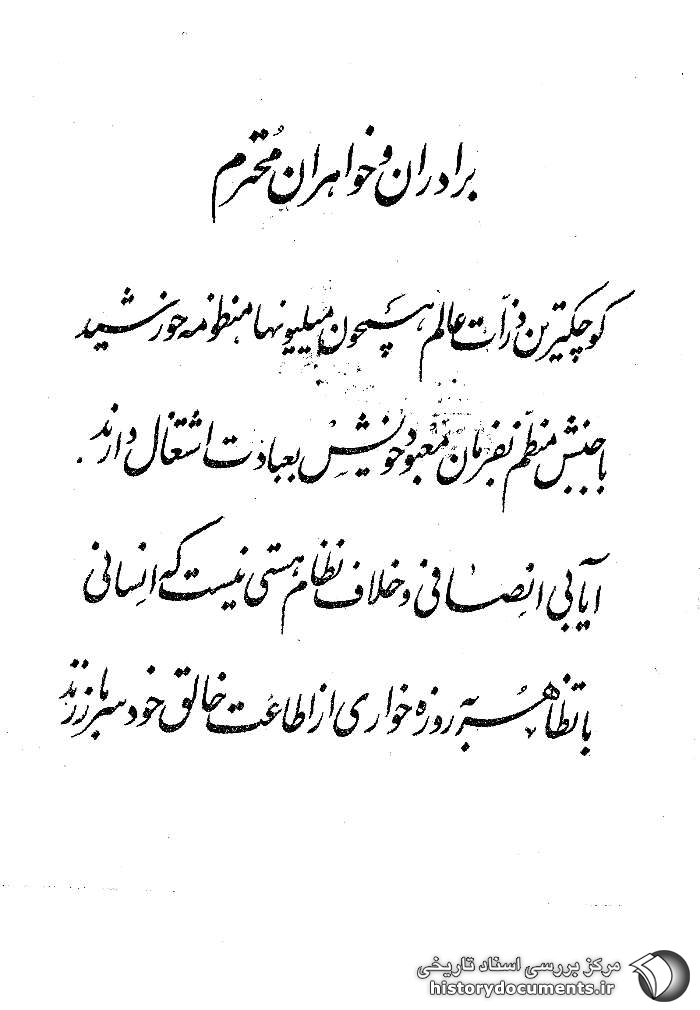 برادران و خواهران محترم
کوچکترین ذرّات عالم همچون میلیونها منظومه خورشید
با جنبش منظّم بفرمان معبود خویش بعبادت اشتغال دارند .
آیا بی انصافی و خلاف نظام هستی نیست که انسانی
با تظاهر به روزه خواری از اطاعت خالق خود سر باز زند
مرکز بررسی اسناد تاریخی
historydocuments.ir